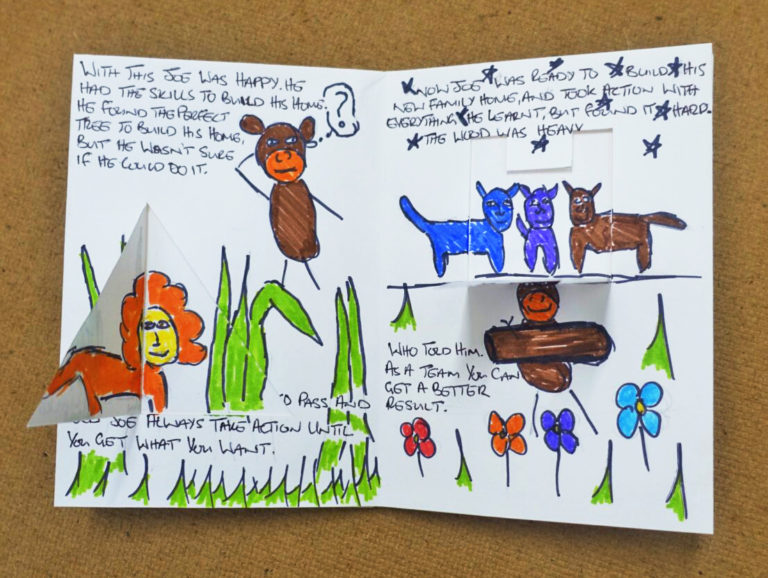 WITH THIS JOE WAS HAPPY. HE
HAD THE SKILLS TO BUILD HIS HOME.
HE FOUND THE PERFECT
TREE TO BUILD HIS HOME,
BUT HE WASN'T SURE
IF HE COULD DO IT.
?
O PASS AND
JOE ALWAYS TAKE ACTION UNTIL
YOU GET WHAT YOU WANT.
KNOW JOE WAS READY TO BUILD HIS
NEW FAMILY HOME, AND TOOK ACTION WITH
EVERYTHING HE LEARNT, BUT FOUND IT HARD.
THE WOOD WAS HEAVY
WHO TOLD HIM.
AS A TEAM YOU CAN
GET A BETTER
RESULT.